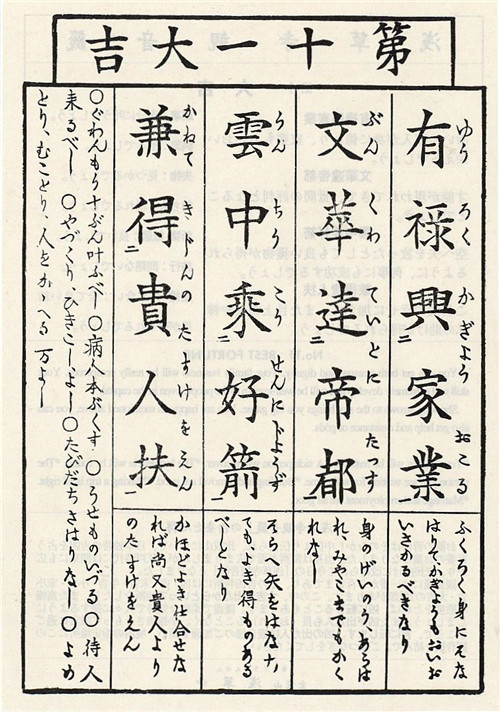 第十一大吉
有禄興二家業一
ゆう ろく かぎよう おこ
ふくろく身にそな
はりてかぎよもおいお
いさかるべきなり
文華達二帝都一
ぶん くわ ていとに たつす
身のげいのうあらは
れ、みやこまでもかく
れなし
雲中乗二好箭一
うん ちう こうせんに じようず
そらへ矢をはなち
てもよき得ものある
べしとなり
兼得二貴人扶一
かねて きじんの たすけを えん
かほどよき仕合せな
れば尚又貴人より
のたすけをえん
〇ぐわんもう十ぶん叶ふべし〇病人本ぶくす〇うせものいづる〇待人
来るべし〇やづくり、ひきこしよし〇たびだちさはりなし〇よめ
とり、むことり、人をかゝへる万よし